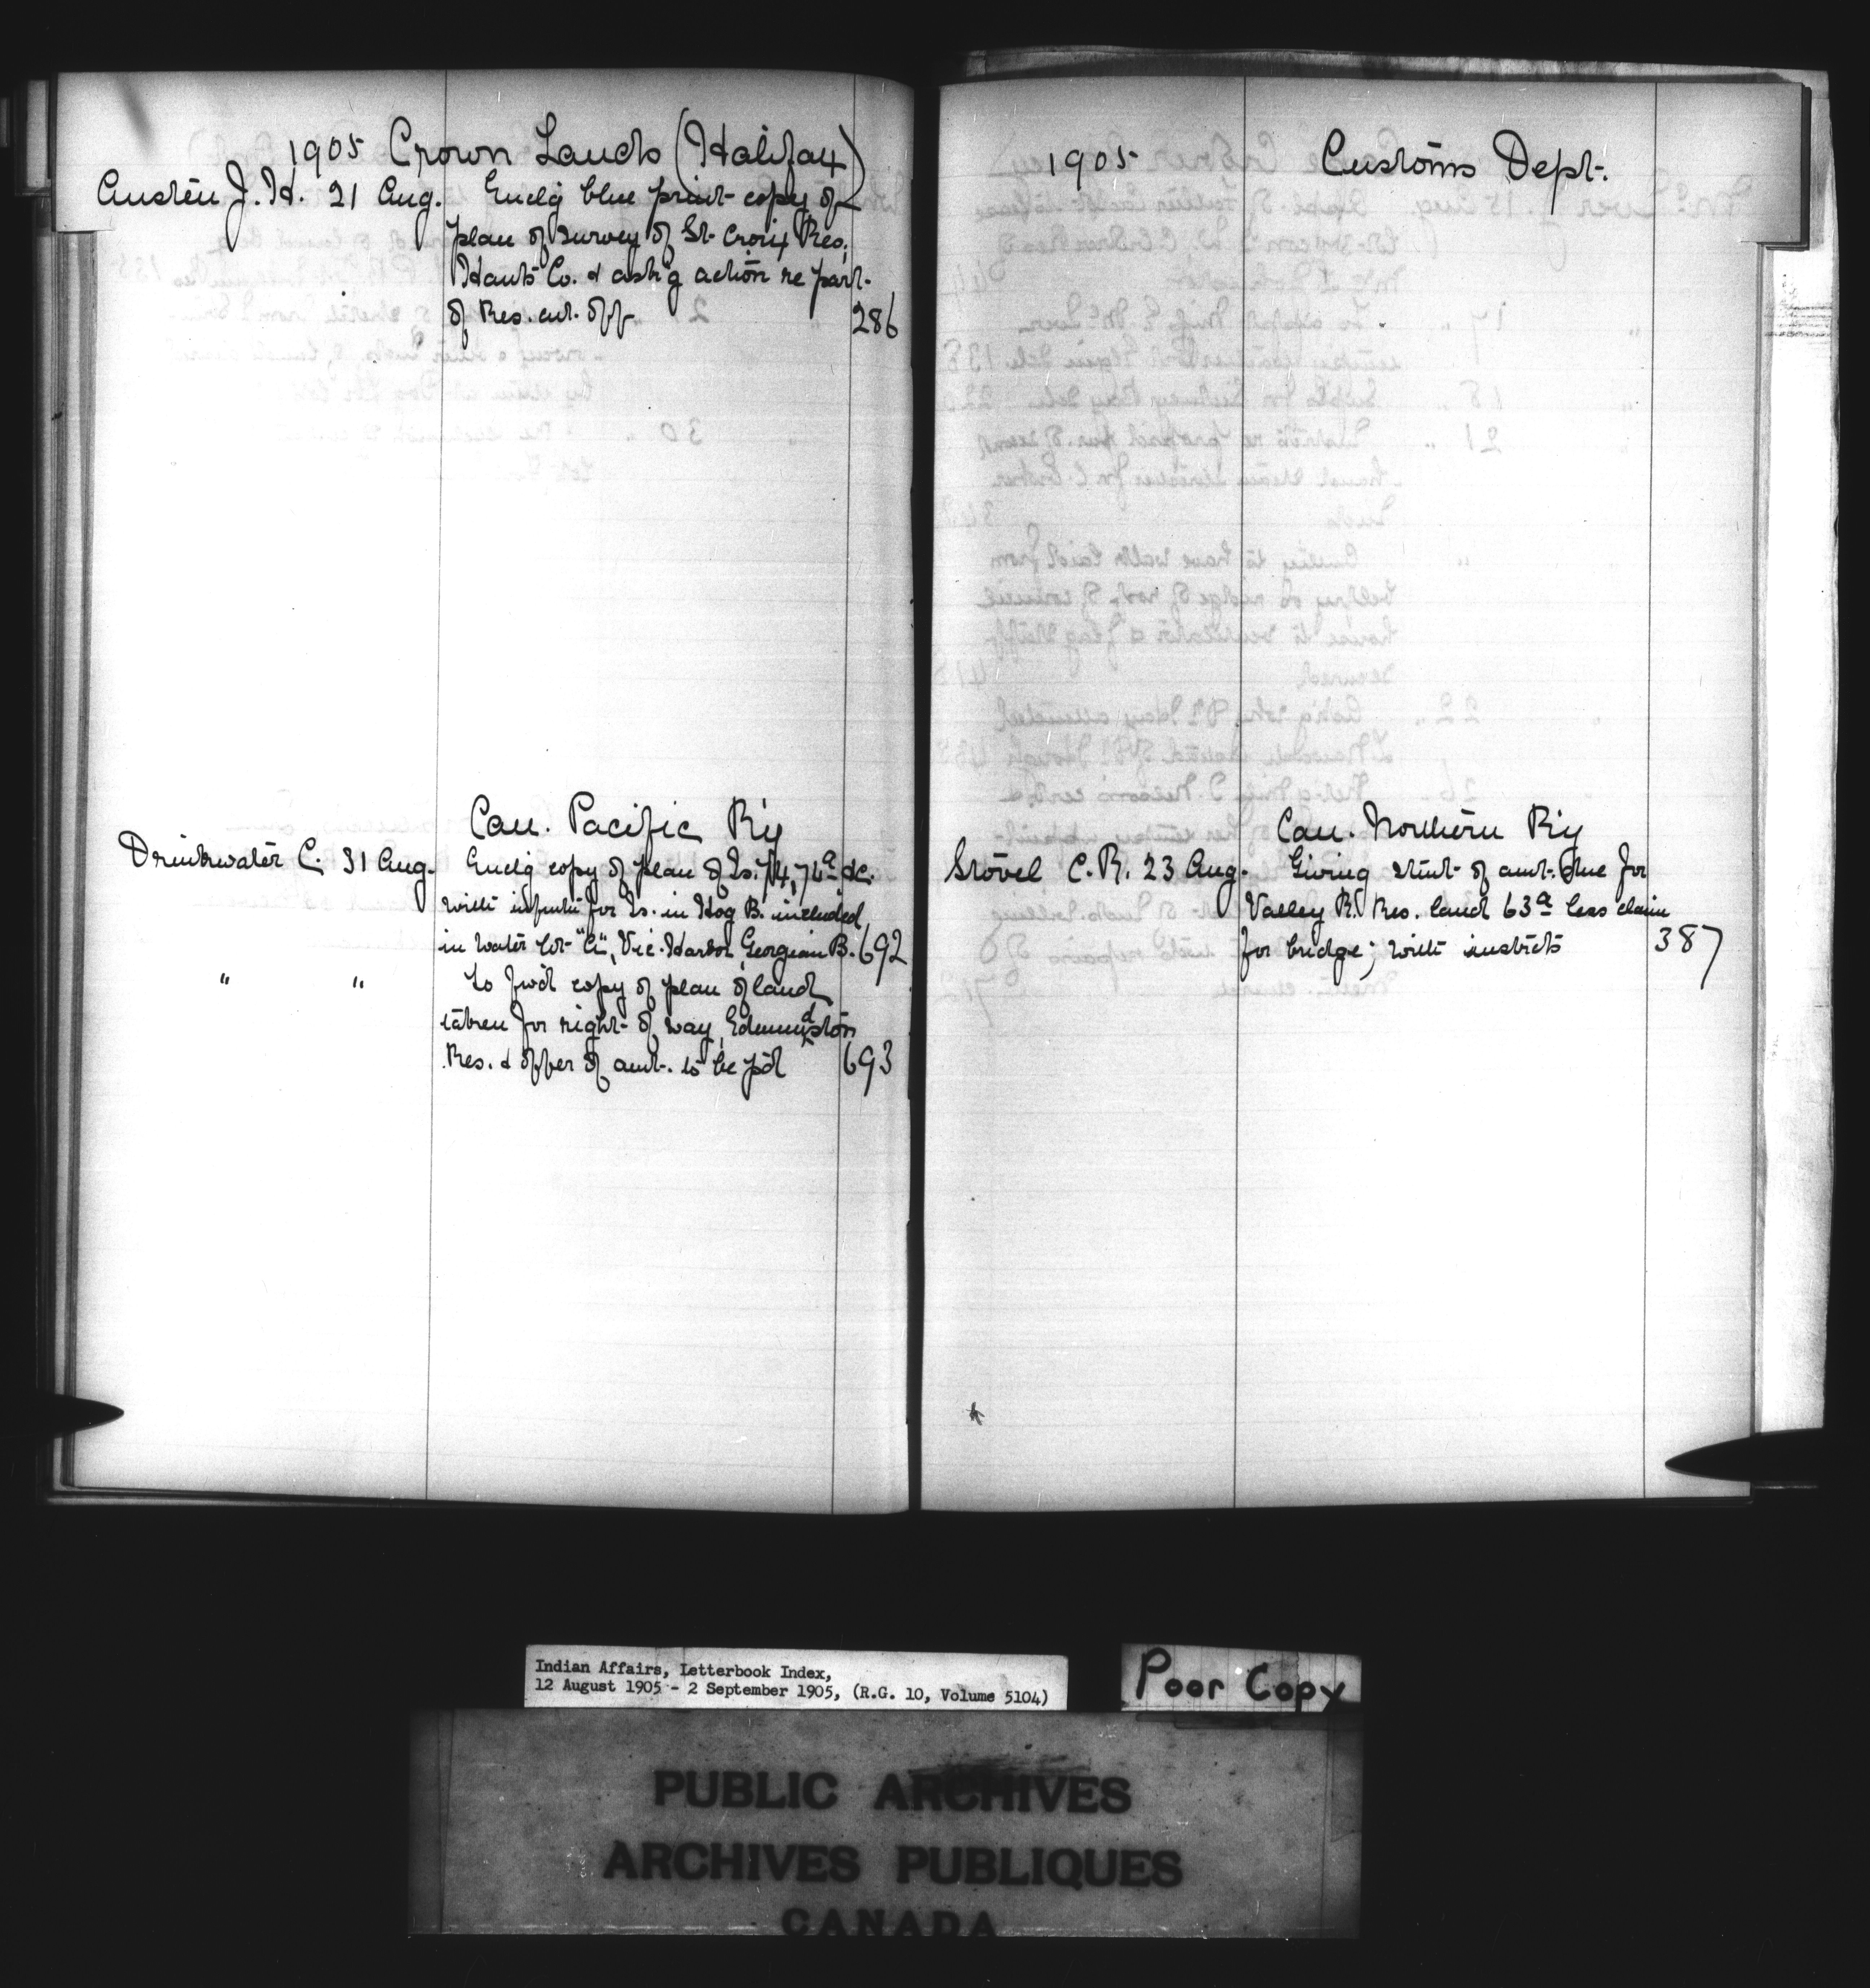 1905 Crown Lands (Halifax)
Austen J. H. 21 Aug. Encl'g blue print copy of
plan of survey of St. Croix Res.
Hants Co. & ask'g action re part
of Res. cut off 286
Can. Pacific R'y
Drinkwater C. 31 Aug. Encl'g copy of plan of Is. 74, 74a &c.
with infmtn for Is. in Hog B. included
in water lot "A", Vic. Harbor, Georgian B. 692
" " To fwd copy of plan of land
taken for right of way, Edmundston
Res. & offer of amt. to be p'd 693
1905 Customs Dept.
Can. Northern R'y
Stovel C. R. 23 Aug. Giving stmt of amt. due for
Valley R. Res. land 63a less claim
for bridge; with instrcts 387
Indian Affairs, Letterbook Index,
12 August 1905 - 2 September 1905, (R.G. 10, Volume 5104)
Poor Copy
PUBLIC ARCHIVES
ARCHIVES PUBLIQUES
CANADA